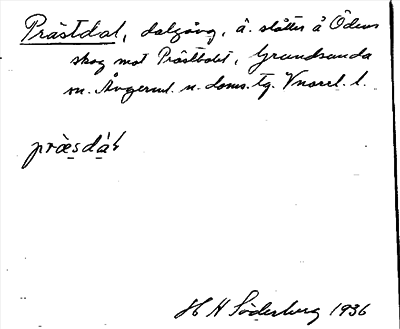 Prästdal, dalgång, å. slåtter å Ödens
skog mot Prästbolet, Grundsunda
sn. Ångerml. n. doms. tg. Vnorrl. l.
præ̀sdáɫ
H H Söderberg 1936